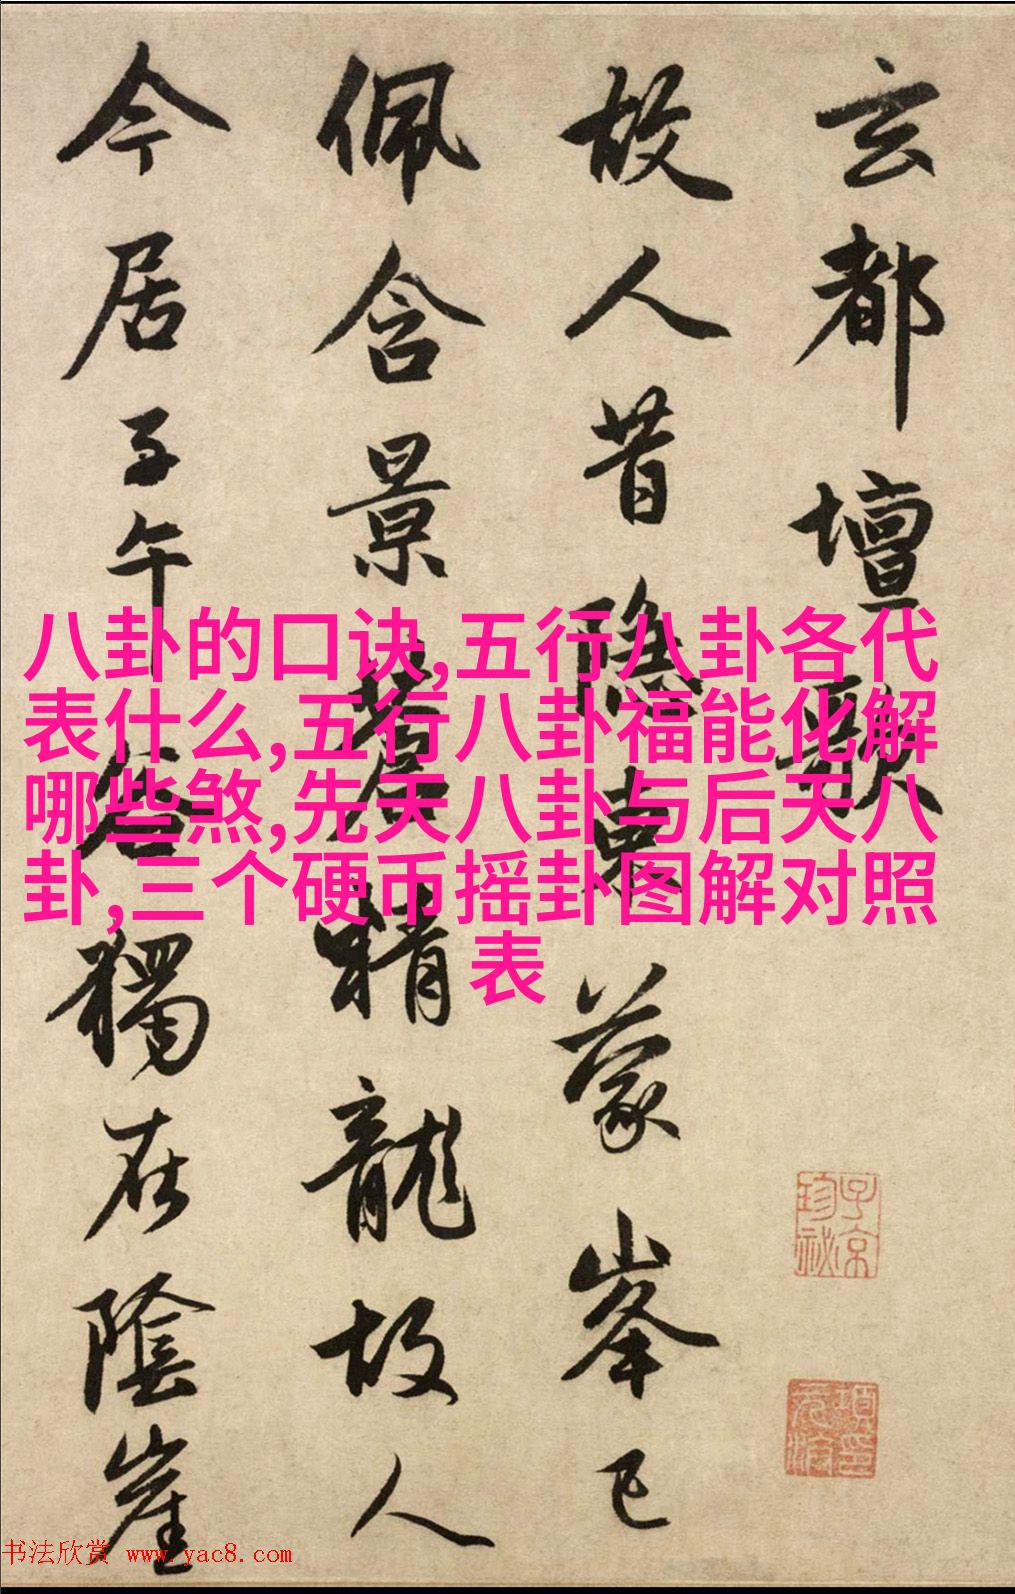 玄都壇歌
故人昔隱東蒙峯已
佩含景蒼精龍故人
今居子午谷獨在陰崖
八卦的口诀,五行八卦各代
表什么,五行八卦福能化解
哪些煞,先天八卦与后天八
卦,三个硬币摇卦图解对照
表
子京
珍祕
书法欣赏 www.yac8.com